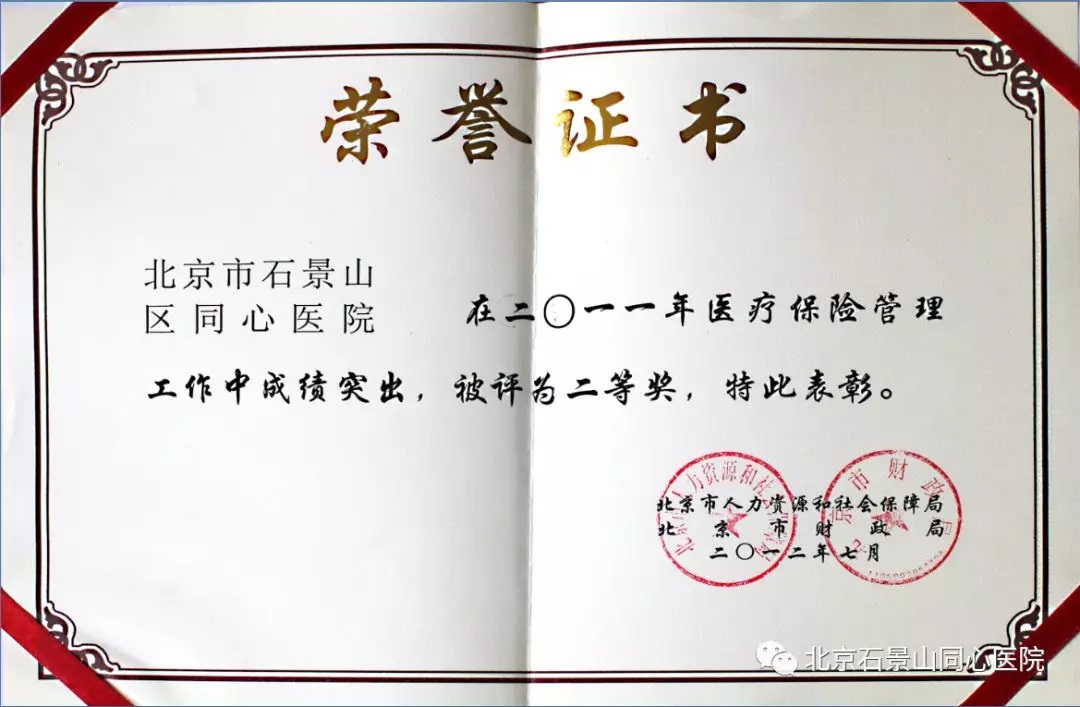 荣誉证书
北京市石景山
区同心医院
在二〇一一年医疗保险管理
工作中成绩突出，被评为二等奖，特此表彰。
北京市人力资源和社会保障局
北京市财政局
二〇一二年七月
北京石景山同心医院